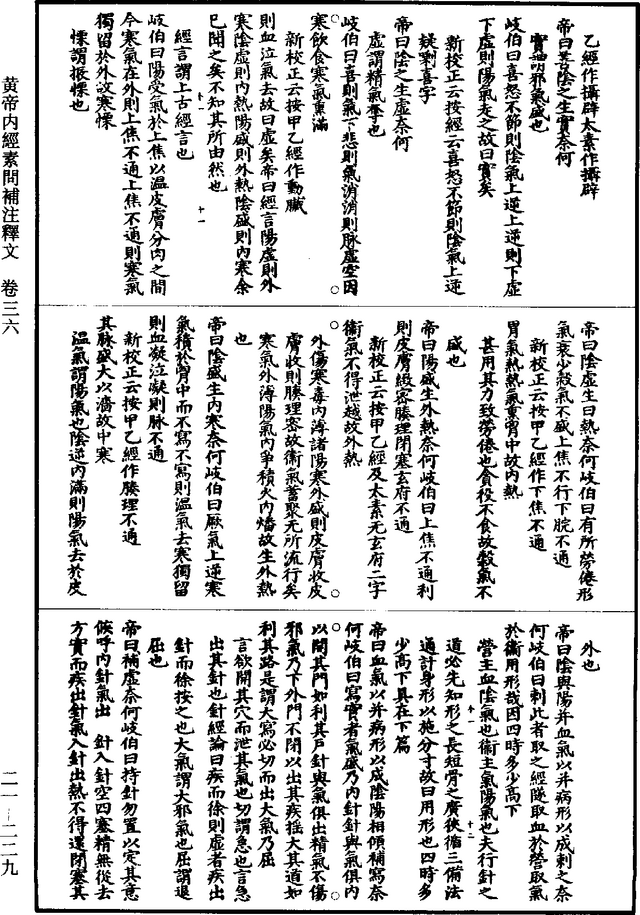 乙經作攝辟太素作攝辟
帝曰善陰之生實奈何
實謂邪氣盛也
岐伯曰喜怒不節則陰氣上逆上逆則下虛
下虛則陽氣走之故曰實矣
新校正云按經云喜怒不節則陰氣上逆
疑剩喜字
帝曰陰之生虛奈何
虛謂精氣奪也
岐伯曰喜則氣下悲則氣消消則脉虛空因
寒飲食寒氣熏滿
新校正云按甲乙經作動臟
則血泣氣去故曰虛矣帝曰經言陽虛則外
寒陰虛則內熱陽盛則外熱陰盛則內寒余
已聞之矣不知其所由然也
經言謂上古經言也
十一
岐伯曰陽受氣於上焦以溫皮膚分肉之間
今寒氣在外則上焦不通上焦不通則寒氣
獨留於外故寒慄
慄謂振慄也
帝曰陰虛生曰熱奈何岐伯曰有所勞倦形
氣衰少穀氣不盛上焦不行下脘不通
新校正云按甲乙經作下焦不通
胃氣熱熱氣熏胃中故內熱
甚用其力致勞倦也貪役不食故穀氣不
盛也
帝曰陽盛生外熱奈何岐伯曰上焦不通利
則皮膚緻密腠理閉塞玄府不通
新校正云按甲乙經及太素无玄府二字
衛氣不得泄越故外熱
外傷寒毒內薄諸陽寒外盛則皮膚收皮
膚收則腠理密故衛氣蓄聚无所流行矣
寒氣外薄陽氣內爭積火內燔故生外熱
也
帝曰陰盛生內寒奈何岐伯曰厥氣上逆寒
氣積於胷中而不寫不寫則溫氣去寒獨留
則血凝泣凝則脉不通
新校正云按甲乙經作腠理不通
其脉盛大以濇故中寒
溫氣謂陽氣也陰逆內滿則陽氣去於皮
外也
帝曰陰與陽并血氣以并病形以成刺之奈
何岐伯曰刺此者取之經隧取血於營取氣
於衛用形哉因四時多少高下
營主血陰氣也衛主氣陽氣也夫行針之
道必先知形之長短骨之廣狹循三備法
十二
通計身形以施分寸故曰用形也四時多
少高下具在下篇
帝曰血氣以并病形以成陰陽相傾補寫奈
何岐伯曰寫實者氣盛乃內針針與氣俱內
以開其門如利其戶針與氣俱出精氣不傷
邪氣乃下外門不閉以出其疾搖大其道如
利其路是謂大寫必切而出大氣乃屈
言欲開其穴而泄其氣也切謂急也言急
出其針也針經論曰疾而徐則虛者疾出
針而徐按之也大氣謂大邪氣也屈謂退
屈也
帝曰補虛奈何岐伯曰持針勿置以定其意
候呼內針氣出針入針空四塞精無從去
方實而疾出針氣入針出熱不得還閉塞其
黄帝内經素問補注釋文 卷三六
二一—二二九